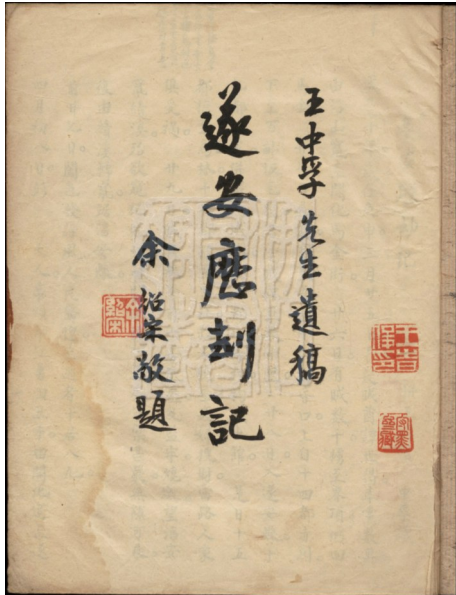 王中孚先生遺稿
遂安歷刦記
余紹宋敬題
余紹宋